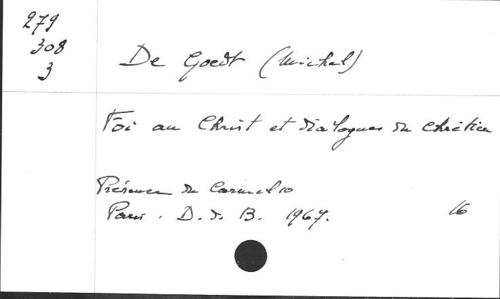 279
308
3
De Goedt (Michel)
Foi au Christ et dialogues du chrétien
Présence du Carmel 10
Paris. D.d.B. 1967.
16